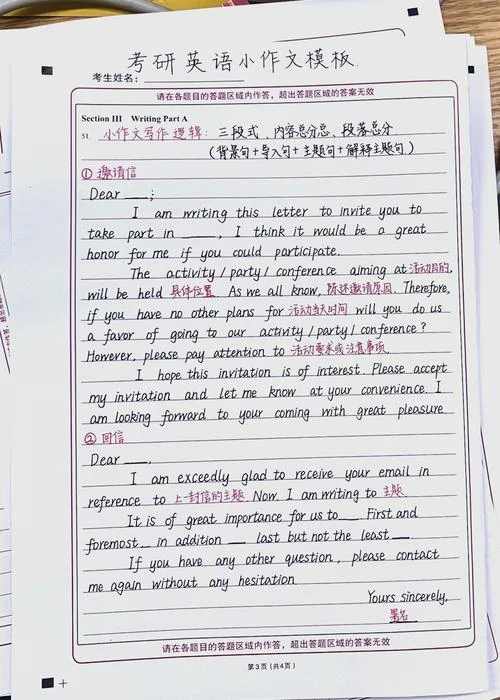 考研英语小作文模板.
考生姓名:
请在各题目的答题区域内作答,超出答题区域的答案无效
Section III Writing Part A
51. 小作文写作逻辑: 三段式、内容总分总、段落总分
(背景句+导入句+主题句+解释主题句)
① 邀请信
Dear ___;
I am writing this letter to invite you to
take part in ____, I think it would be a great
honor for me if you could participate.
The activity/party/conference aiming at 活动目的,
will be held 具体位置. As we all know, 陈述邀请原因. Therefore,
if you have no other plans for 活动当天时间 will you do us
a favor of going to our activity/party/conference?
However, please pay attention to 活动要求或注意事项.
I hope this invitation is of interest. Please accept
my invitation and let me know at your convenience. I
am looking forward to your coming with great pleasure.
② 回信
Dear ___,
I am exceedly glad to receive your email in
reference to 上一封信的主题. Now. I am writing to 主题
It is of great importance for us to___. First and
foremost_ in addition __ last but not the least___
If you have any other question, please contact
me again without any hesitation.
Yours sincerely,
署名
请在各题目的答题区域内作答,超出答题区域的答案无效
第3页(共4页)